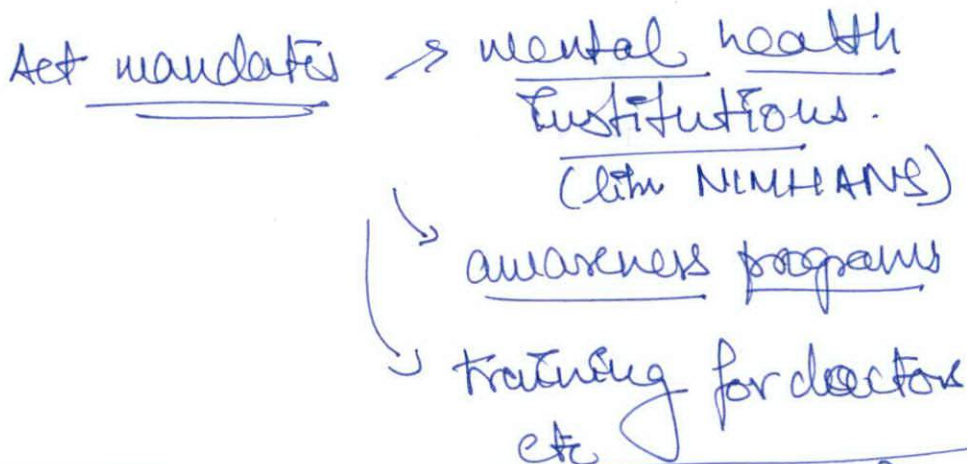 Act mandates → mental health
Institutions.
(like NIMHANS)
↘ awareness programs
↘ training for doctors
etc